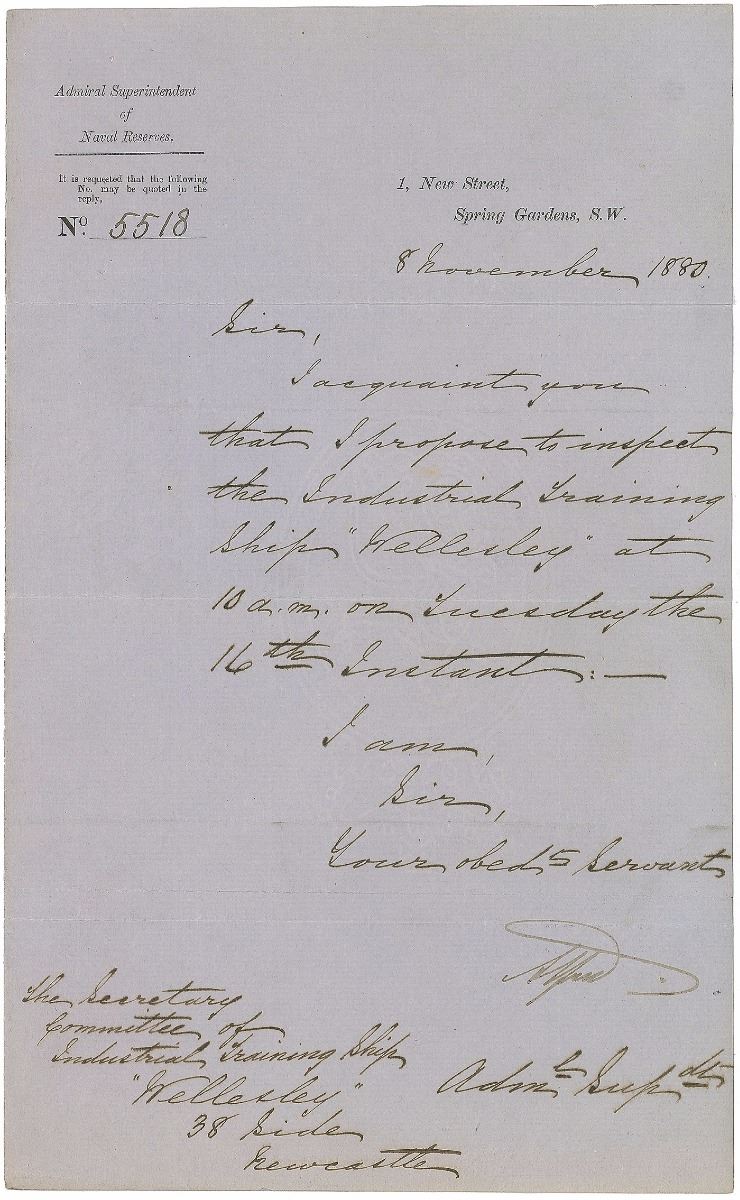 Admiral Superintendent
of
Naval Reserves.
It is requested that the following
No. may be quoted in the
reply,
No. 5518
1, New Street,
Spring Gardens, S.W.
8 November 1880.
Sir,
I acquaint you
that I propose to inspect
the Industrial Training
Ship "Wellesley" at
10 a.m. on Tuesday the
16th Instant:—
I am,
Sir,
Your obedt Servant
Alfred
Adml Supdt
The Secretary
Committee of
Industrial Training Ship
"Wellesley"
38 Side
Newcastle